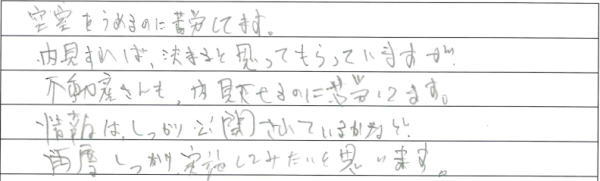 空室をうめるのに苦労してます。
内見すれば、決まると思ってもらっていますが、
不動産さんも、内見させるのに苦労してます。
情報は、しっかり公開されているかなど、
再度しっかり実施してみたいと思います。